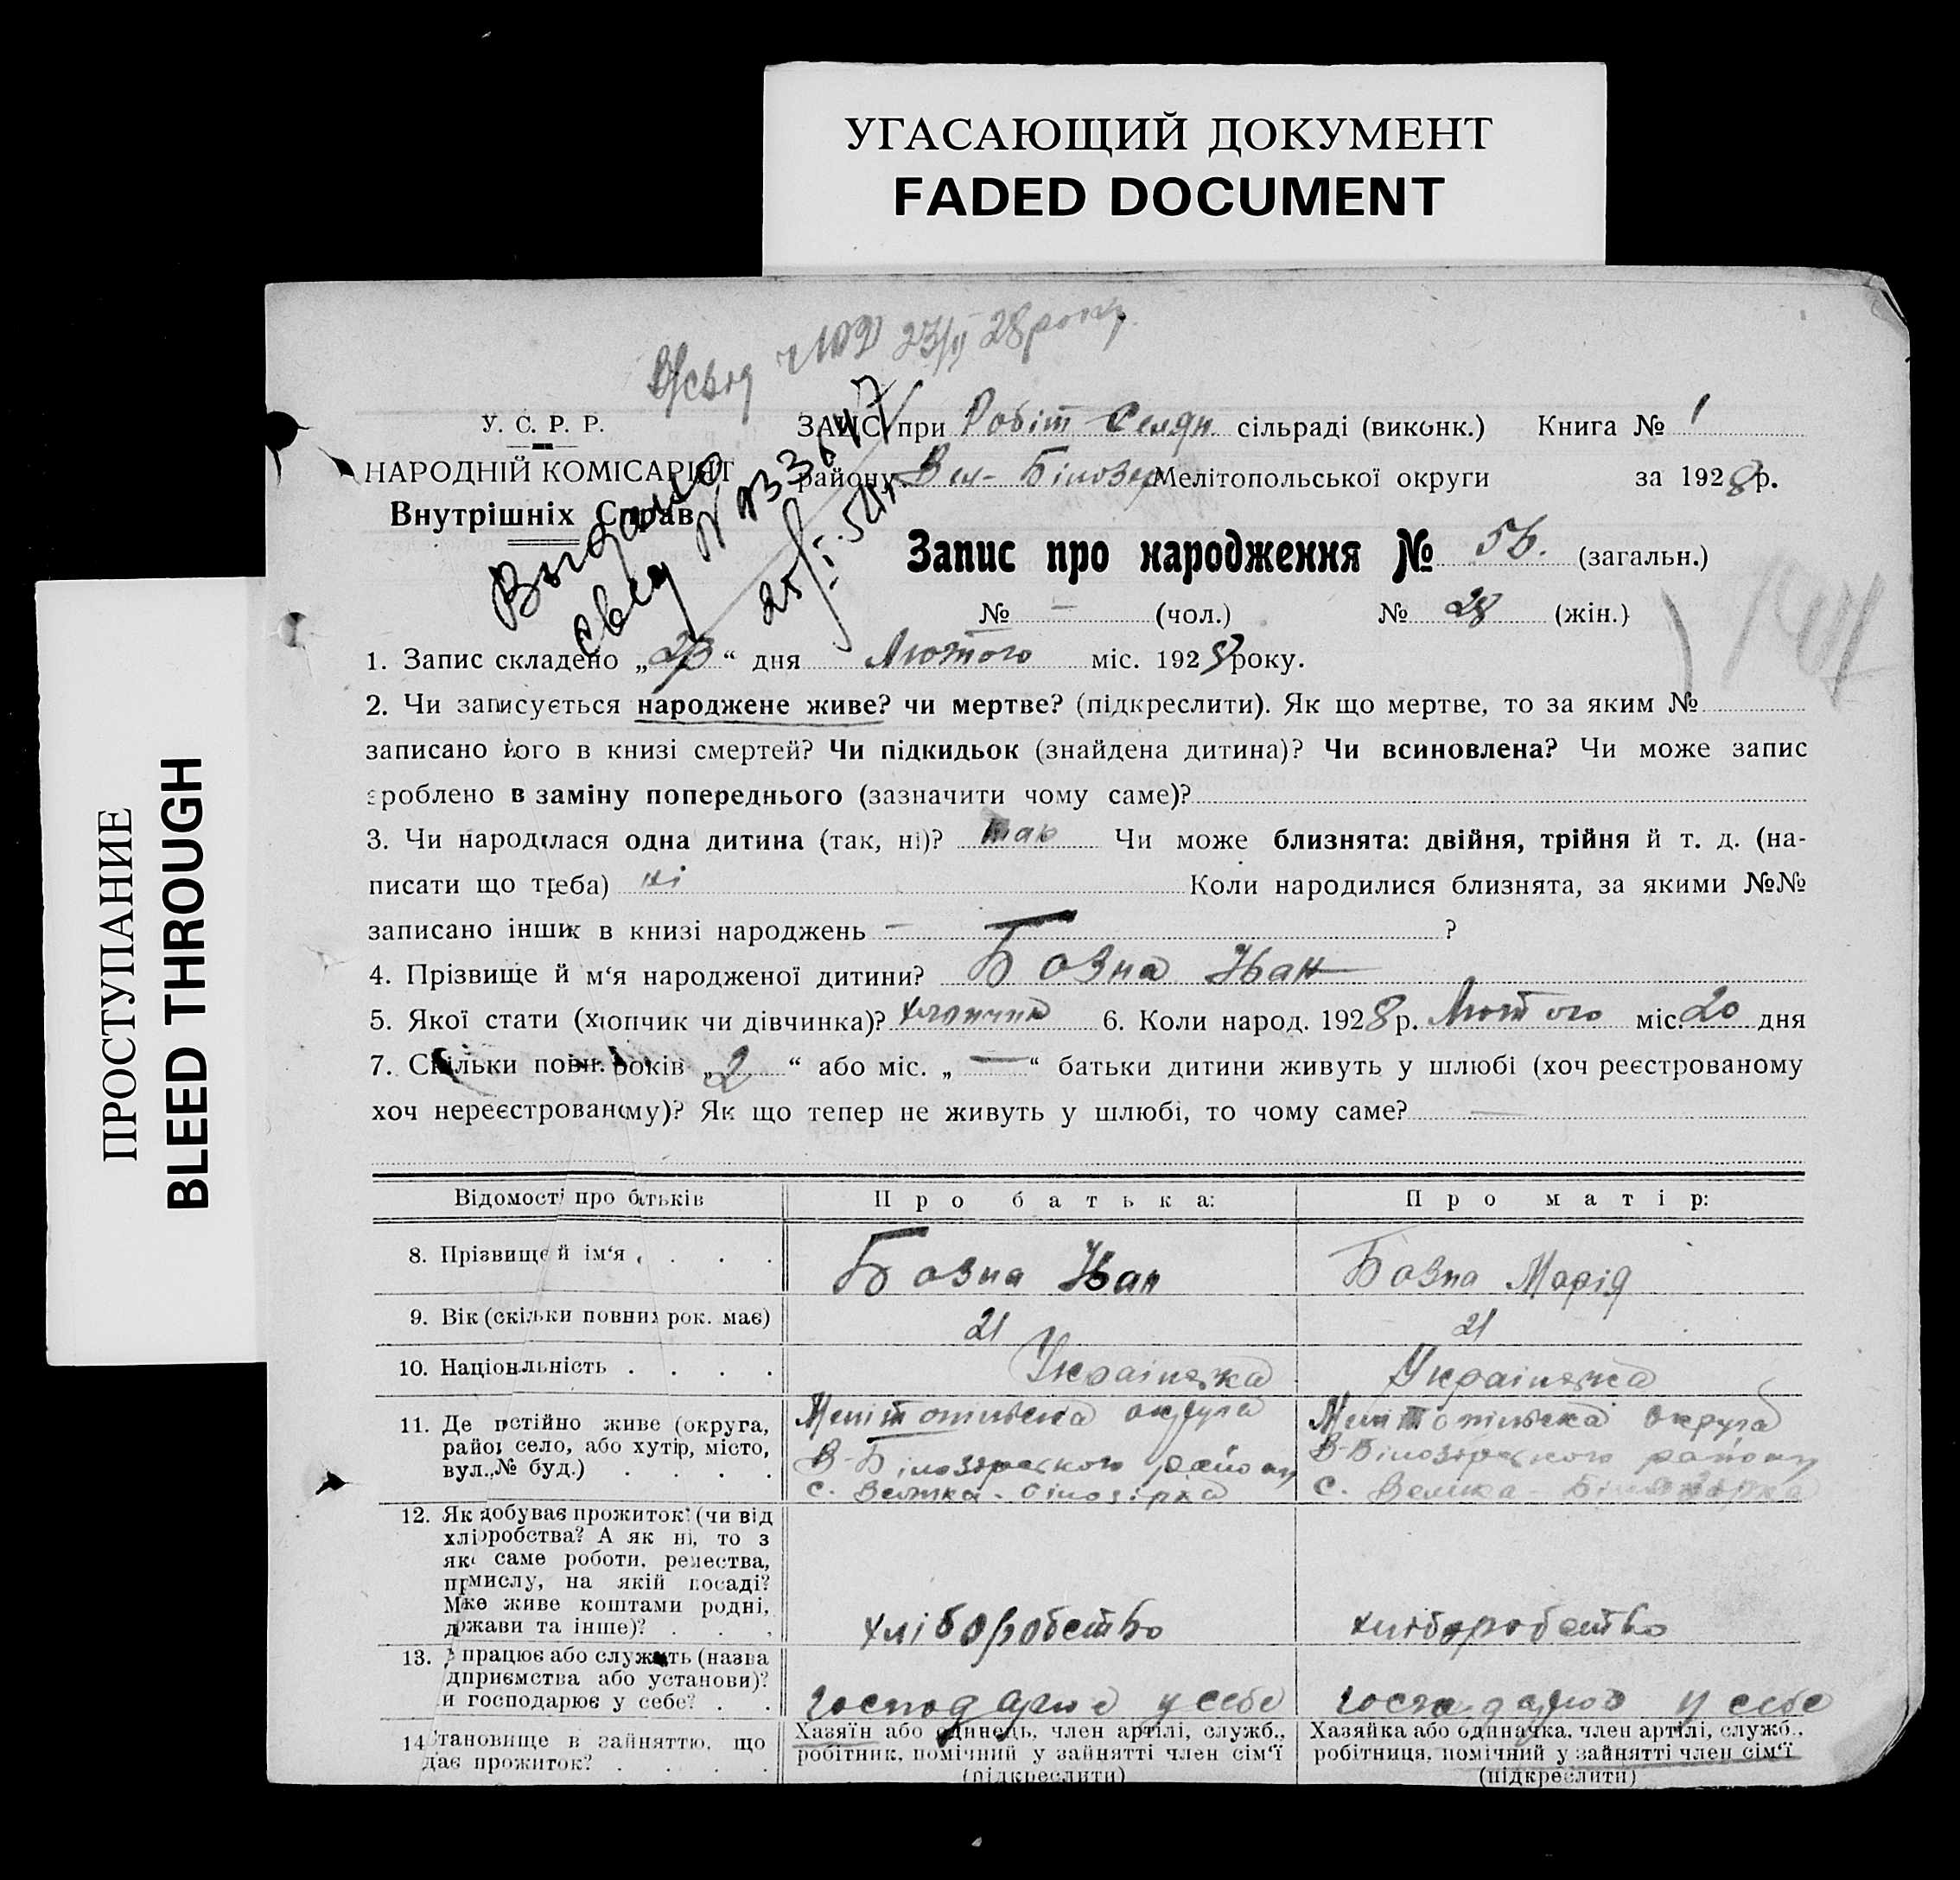 УГАСАЮЩИЙ ДОКУМЕНТ
FADED DOCUMENT
ПРОСТУПАНИЕ
BLEED THROUGH
23/II 28 року.
У. С. Р. Р.
НАРОДНІЙ КОМІСАРІЯТ
Внутрішніх Справ
Выдано
свид
25/I-54
ЗАЦС при Робіт Селян. сільраді (виконк.) Книга № 1
району Вел-Білозер Мелітопольської округи за 1928 р.
Запис про народження № 56. (загальн.)
№ — (чол.) № 28 (жін.)
1. Запис складено „23“ дня Лютого міс. 1928 року.
2. Чи записується народжене живе? чи мертве? (підкреслити). Як що мертве, то за яким №
записано його в книзі смертей? Чи підкидьок (знайдена дитина)? Чи всиновлена? Чи може запис
зроблено в заміну попереднього (зазначити чому саме)?
3. Чи народилася одна дитина (так, ні)? так Чи може близнята: двійня, трійня й т. д. (на-
писати що треба) ні Коли народилися близнята, за якими №№
записано інших в книзі народжень — ?
4. Прізвище й м‘я народженої дитини? Бозна Іван
5. Якої стати (хлопчик чи дівчинка)? хлопчик 6. Коли народ. 1928 р. Лютого міс. 20 дня
7. Скільки повн. років „2“ або міс. „—“ батьки дитини живуть у шлюбі (хоч реєстрованому
хоч нереєстрованому)? Як що тепер не живуть у шлюбі, то чому саме? —
Відомості про батьків Про батька: Про матір:
8. Прізвище й ім‘я . . . . Бозна Іван Бозна Марія
9. Вік (скільки повних рок. має) 21 21
10. Національність . . . . Українська Українська
11. Де постійно живе (округа, Мелітопільська округа Мелітопільська округа
район село, або хутір, місто, В-Білозірського району В-Білозірського району
вул., № буд.) . . . . с. Велика-Білозірка с. Велика-Білозірка
12. Як добуває прожиток? (чи від
хліборобства? А як ні, то з
якої саме роботи, ремества,
промислу, на якій посаді?
Може живе коштами родні,
держави та інше)? . . . хліборобство хліборобство
13. працює або служить (назва
дприємства або установи)?
и господарює у себе? . . господарює у себе господарює у себе
14 Становище в зайняттю, що Хазяїн або одинець, член артілі, служб., Хазяйка або одиначка, член артілі, служб.,
дає прожиток? . . . . робітник, помічний у зайнятті член сім‘ї робітниця, помічний у зайнятті член сім‘ї
(підкреслити) (підкреслити)